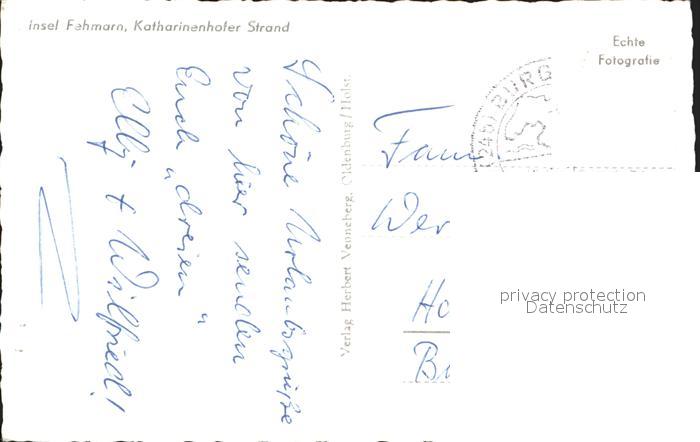 insel Fehmarn, Katharinenhofer Strand
Echte
Fotografie
(2449) BURG
Schöne Urlaubsgrüße
von hier senden
Euch „dreien"
Elly + Wilfried!
Verlag Herbert Venneberg, Oldenburg/Holst.
Fam
Wer
Ho
Br
privacy protection
Datenschutz